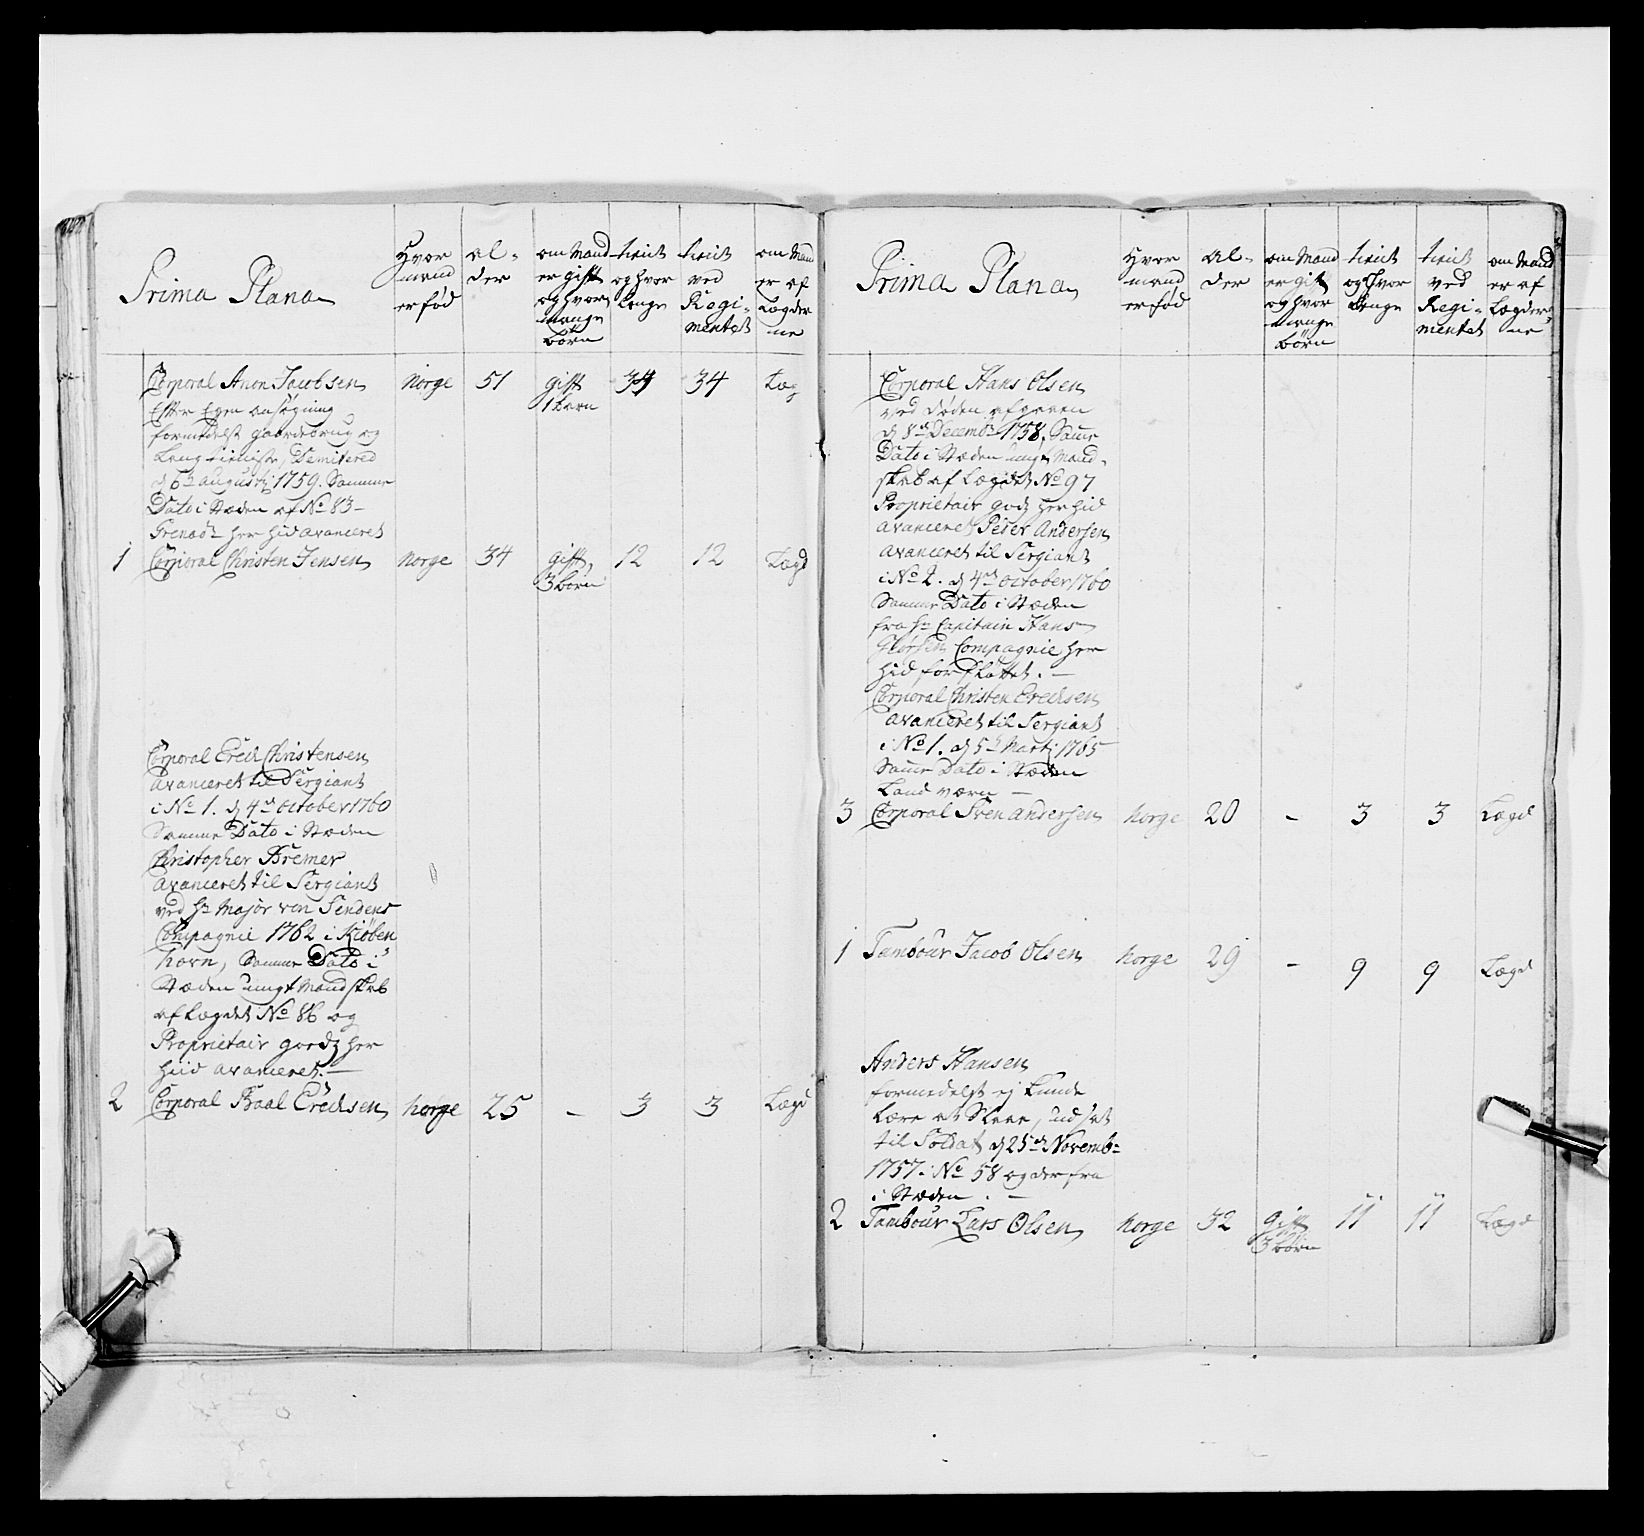 Prima Plana
Hvor
mand
er fød
al-
der
om Mand
er gift
og hvor
mange
børn
tient
og hvor
Lenge
tient
ved
Regi-
mentet
om Man
er af
Lægder
ne
Corporal Anon Jacobsen Norge 51 gift 34 34 Læg
1 barn
Efter Egen ansøgning
formedelst gaardebrug og
Lang tieniste, Demitered
d 6te augusti 1759. Samme
Dato i Stæden af No 83
Grenadr her hid avanceret
1 Corporal Christen Jensen Norge 34 gift, 12 12 Lægd
3 børn
Corporal Erech Christensen
avanceret til Sergiant
i No 1. d 4de October 1760
Samme Dato i Stæden
Christopher Bremer
avanceret til Sergiant
ved Hr Major von Sendens
Compagnie 1762 i Kiøben
havn, Samme Dato i
Stæden ungt Mandskab
af Lægdet No 86 og
Proprietair gaard her
hid avanceret.
2 Corporal Paal Erechsen Norge 25 - 3 3 Lægd
Prima Plana
Hvor
mand
er fød
Al-
der
om Mand
er gift
og hvor
mange
børn
tient
og hvor
Lenge
tient
ved
Regi-
mentet
om Mand
er af
Lægder-
ne
Corporal Hans Olsen
ved Døden afgaaen
d 8de Decembr 1758, Samme
Dato i Stæden ungt Mand-
skab af Lægdet No 97
Proprietair gods her hid
avanceret Peder Andersen
avanceret til Sergiant
i No 2. d 4de October 1760
Samme Dato i Stæden
fra Hr Capitain Hans
Compagnie her
hid forfløttet.
Corporal Christen Erechsen
avanceret til Sergiant
i No 1. d 5te Marti 1765
Samme Dato i Stæden
Land værn
3 Corporal Sven Andersen Norge 20 - 3 3 Lægd
1 Tambour Jacob Olsen Norge 29 - 9 9 Lægd
Anders Hansen
formedelst ej kunde
Lære at Slaae, udsat
til Soldat d 25de Novembr
1757. i No 58 og derfra
i Stæden.
2 Tambour Lars Olsen Norge 32 Gift 11 11 Lægd
3 børn